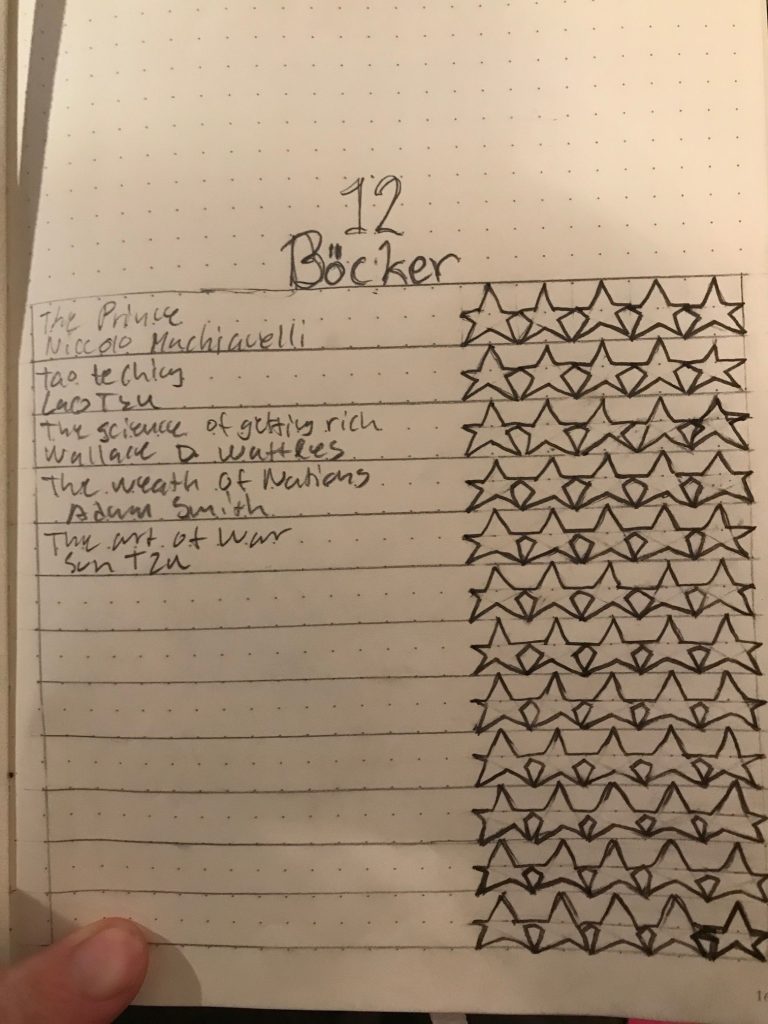 12
Böcker
The Prince
Niccolo Machiavelli
Tao te ching
Lao Tzu
The science of getting rich
Wallace D Wattles
The weath of Nations
Adam Smith
The art of War
Sun Tzu
16